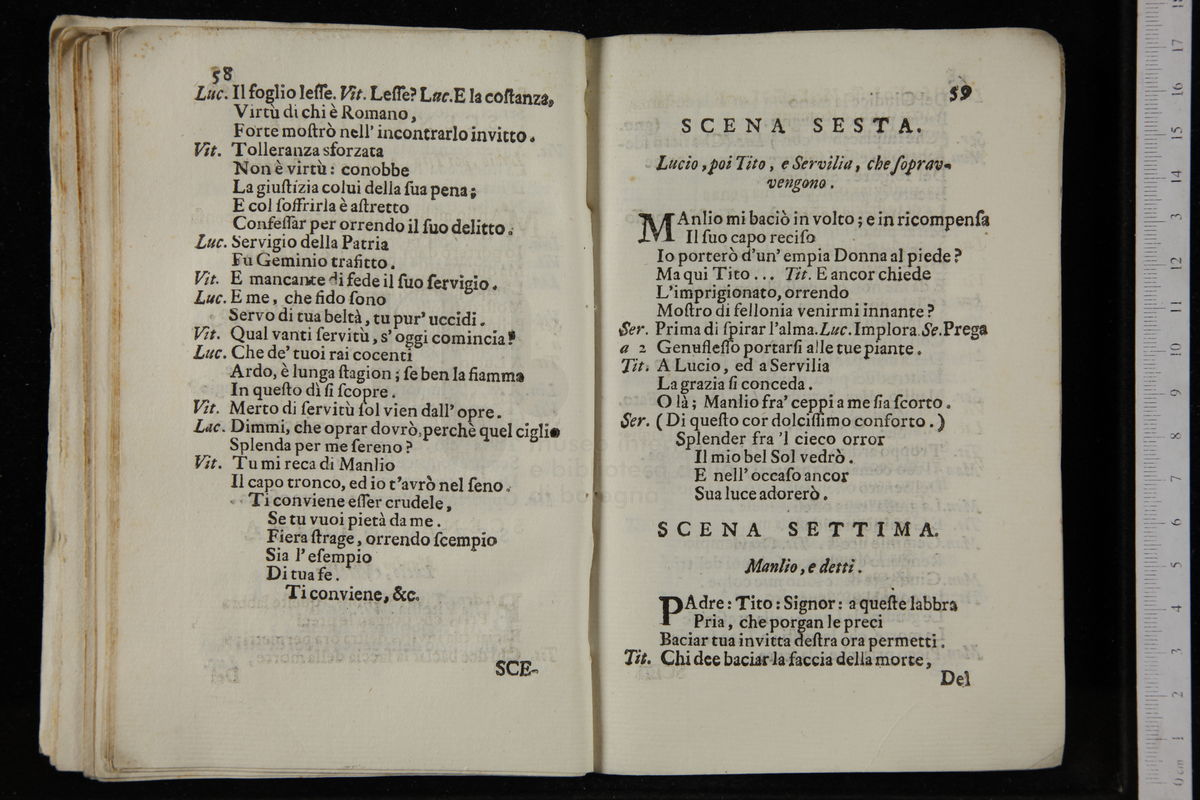 58
Luc. Il foglio leſſe. Vit. Leſſe? Luc. E la coſtanza,
Virtù di chi è Romano,
Forte moſtrò nell' incontrarlo invitto.
Vit. Tolleranza sforzata
Non è virtù: conobbe
La giuſtizia colui della ſua pena;
E col ſoffrirla è aſtretto
Confeſſar per orrendo il ſuo delitto.
Luc. Servigio della Patria
Fu Geminio trafitto.
Vit. E mancante di fede il ſuo ſervigio.
Luc. E me, che fido ſono
Servo di tua beltà, tu pur' uccidi.
Vit. Qual vanti ſervitù, s' oggi comincia?
Luc. Che de' tuoi rai cocenti
Ardo, è lunga ſtagion; ſe ben la fiamma
In queſto dì ſi ſcopre.
Vit. Merto di ſervitù ſol vien dall' opre.
Luc. Dimmi, che oprar dovrò, perchè quel ciglio
Splenda per me ſereno?
Vit. Tu mi reca di Manlio
Il capo tronco, ed io t'avrò nel ſeno.
Ti conviene eſſer crudele,
Se tu vuoi pietà da me.
Fiera ſtrage, orrendo ſcempio
Sia l' eſempio
Di tua fe.
Ti conviene, &c.
SCE-
59
SCENA SESTA.
Lucio, poi Tito, e Servilia, che ſoprav-
vengono.
MAnlio mi baciò in volto; e in ricompenſa
Il ſuo capo reciſo
Io porterò d'un' empia Donna al piede?
Ma qui Tito... Tit. E ancor chiede
L'imprigionato, orrendo
Moſtro di fellonia venirmi innante?
Ser. Prima di ſpirar l'alma. Luc. Implora. Se. Prega
a 2 Genufleſſo portarſi alle tue piante.
Tit. A Lucio, ed a Servilia
La grazia ſi conceda.
O là; Manlio fra' ceppi a me ſia ſcorto.
Ser. (Di queſto cor dolciſſimo conforto.)
Splender fra 'l cieco orror
Il mio bel Sol vedrò.
E nell' occaſo ancor
Sua luce adorerò.
SCENA SETTIMA.
Manlio, e detti.
PAdre: Tito: Signor: a queſte labbra
Pria, che porgan le preci
Baciar tua invitta deſtra ora permetti.
Tit. Chi dee baciar la faccia della morte,
Del